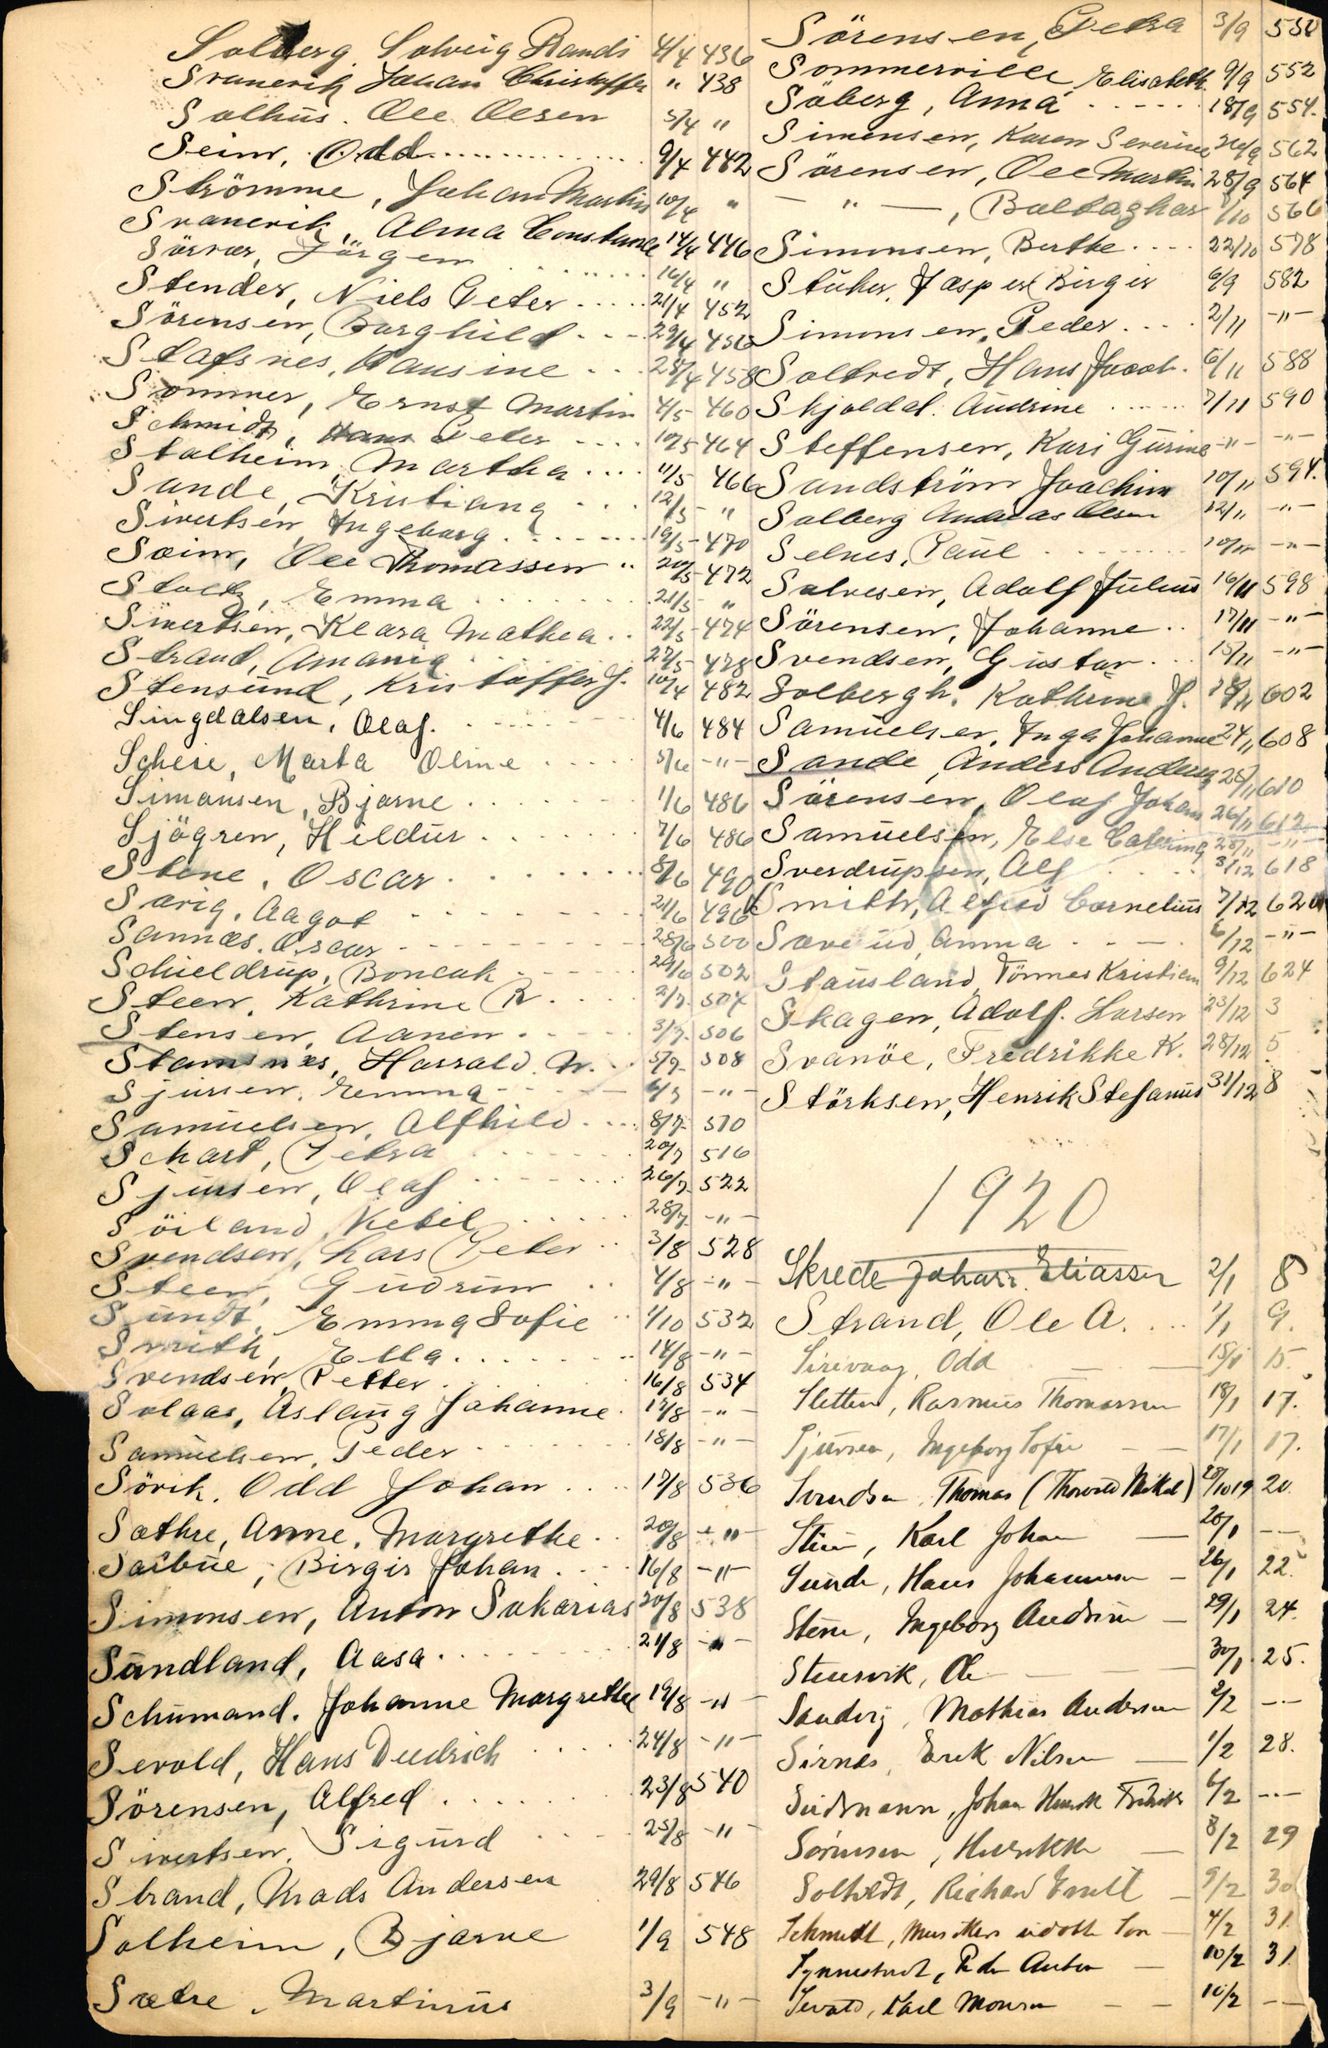 Solberg, Solveig Randi 4/4 436
Svanevik Johan Christoffer " 438
Solhus. Ole Olsen 5/4 "
Seim, Odd 9/4 442
Strömme, Johan Martin 10/4 "
Svanevik, Alma Constance 14/4 446
Sörvær, Jörgen 16/4 "
Stender, Niels Peter 21/4 452
Sörensen, Borghild 29/4 456
Stafsnes, Hansine 28/4 458
Sommer, Ernst Martin 4/5 460
Schmidt, Hans Peder 10/5 464
Stalheim Martha 11/5 466
Sande, Kristiana 12/5 "
Sivertsen, Ingeborg 19/5 470
Soeim, Ole Thomassen 20/5 472
Stoltz, Emma 21/5 "
Sivertsen, Klara Mathea 22/5 474
Strand, Amania 27/5 478
Stensund, Kristoffer J. 10/4 482
Singdalsen, Olaf. 4/6 484
Scheie, Marta Oline 5/6 -"-
Simonsen, Bjarne 1/6 486
Sjögren, Hildur 7/6 486
Stene, Oscar 8/6 490
Sørig, Aagot 21/6 496
Sannæs. Oscar 28/6 500
Schieldrup, 29/6 502
Steen, Kathrine R 2/7 504
Stensen, Aanen 3/7. 506
Stamsnes, Harrald. N. 5/7. 508
Sjursen, Emma 6/7 -"-
Samuelsen, Alfhild 8/7. 510
Schart, Petra 20/7 516
Sjursen, Olaf 26/7. 522
Söiland, Ketel 28/7. -"-
Svendsen, Lars Peter 3/8 528
Steen, Gudrun 4/8 -"-
Sundt, Emma Sofie 1/10 532
Smith, Ella 14/8 -"-
Svendsen, Petter 16/8 534
Solaas, Aslaug Johanne 17/8 -"-
Samuelsen, Peder 18/8 -"-
Sörik. Odd Johan 17/8 536
Sæthre, Anne, Margrethe 20/8 -"-
Birger Johan 16/8 -"-
Simonsen, Anton Sakarias 20/8 538
Sundland, Aasa 21/8 -"-
Schumand. Johanne Margrethe 19/8 -"-
Sevold, Hans Diedrich 24/8 -"-
Sörensen, Alfred 23/8 540
Sivertsen, Sigurd 25/8 -"-
Strand, Mads Andersen 29/8 546
Solheim, Bjarne 1/9 548
Sætre, Martinus 3/9 -"-
Sörensen, Petra 3/9 550
Sommerville, Elisabeth 9/9 552
Söberg, Anna 18/9 554.
Simensen, Karen Severine 26/9 562
Sörensen, Ole Martin 28/9 564
— " —, Baltaghar /10 566
Simonsen, Berthe 22/10 578
Stuhr, Jasper Birger 6/9 582
Simonsen, Peder 2/11 -"-
Soltvedt, Hans Jacob 6/11 588
Skjoldal. Andrine 7/11 590
Steffensen, Kari Gurine -"- -"-
Sandström Joachim 10/11 594.
Solberg Andreas Olsen 12/11 -"-
Selnes, Paul 10/11 -"-
Salvesen, Adolf Julius 16/11 598
Sörensen, Johanne 17/11 -"-
Svendsen, Gustav 15/11 -"-
Solbergh, Kathrine J. 18/11 602
Samuelsen, Inga Johanne 24/11 608
Sande, Anders Andersen 25/11 610
Sörensen, Olaf Johan 26/11 612
Samuelsen, Else Catrine 28/11 -"-
Sverdrupsen, Alf 3/12 618
Smith, Alfred Cornelius 7/12 620
Sæveud, Anna 6/12 -"-
Stausland, Tönnes Kristian 9/12 624
Skagen, Adolf. Larsen 23/12 3
Svanöe, Fredrikke K. 28/12 5
Störksen, Henrik Stefanus 31/12 8
1920
Skrede Johan Eliassen 2/1 8
Strand, Ole A. 1/1 9.
Sirevaag, Odd 15/1 15.
Sletten, Rasmus Thomassen 18/1 17.
Sjursen, Ingeborg Sofie 17/1 17.
Svendsen, Thomas (Thorvald Mikal) 28/10 19 20.
Stein, Karl Johan 20/1 -"-
Sunde, Hans Johannesen 26/1 22.
Stene, Ingeborg Andrine 29/1 24.
Stuersvik, Ole 30/1. 25.
Sandvig, Mathias Andersen 2/2 -"-
Sirnes, Erik Nilsen 1/2 28.
Sudmann, Johan Henrik Fredrik 6/2 -"-
Sörensen, Henrikke 8/2 29
Soltvedt, Richard Emil 9/2 30
Schmidt, 4/2 31.
Synnestvedt, Peder Anton 10/2 31.
Sevald, Karl Monsen 10/2 -"-